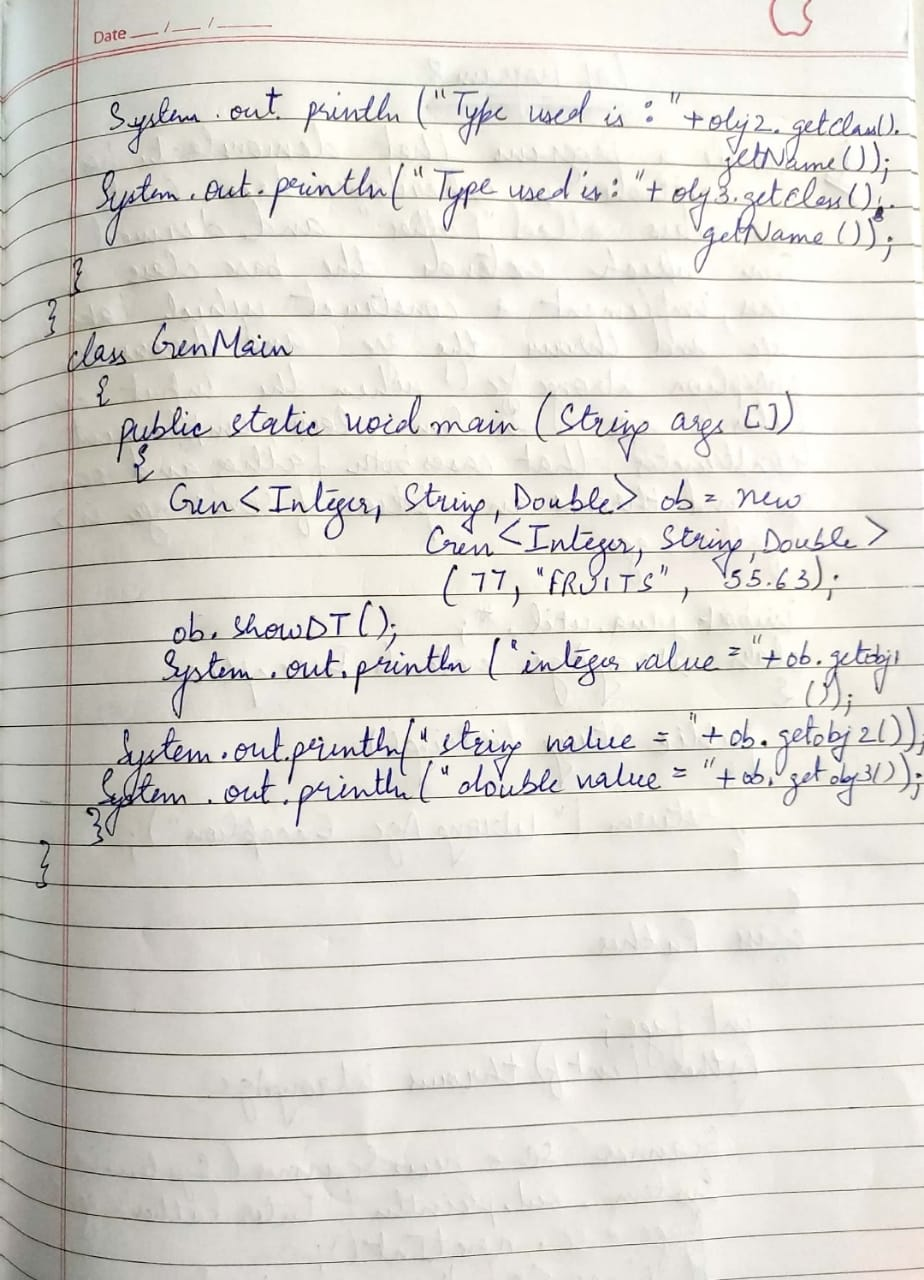 Date __/__/__
System.out.println ("Type used is : " +obj2.getclass().
getName());
System.out.println("Type used is: "+ obj3.getclass().
getName());
}
}
class GenMain
{
public static void main (String args [])
{
Gen<Integer, String, Double> ob = new
Gen<Integer, String, Double>
(77, "FRUITS", 55.63);
ob. showDT();
System.out.println ("integer value = "+ob.getobj1
());
System.out.println("string value = "+ob.getobj2());
System.out.println("double value = "+ob.getobj3());
}
}